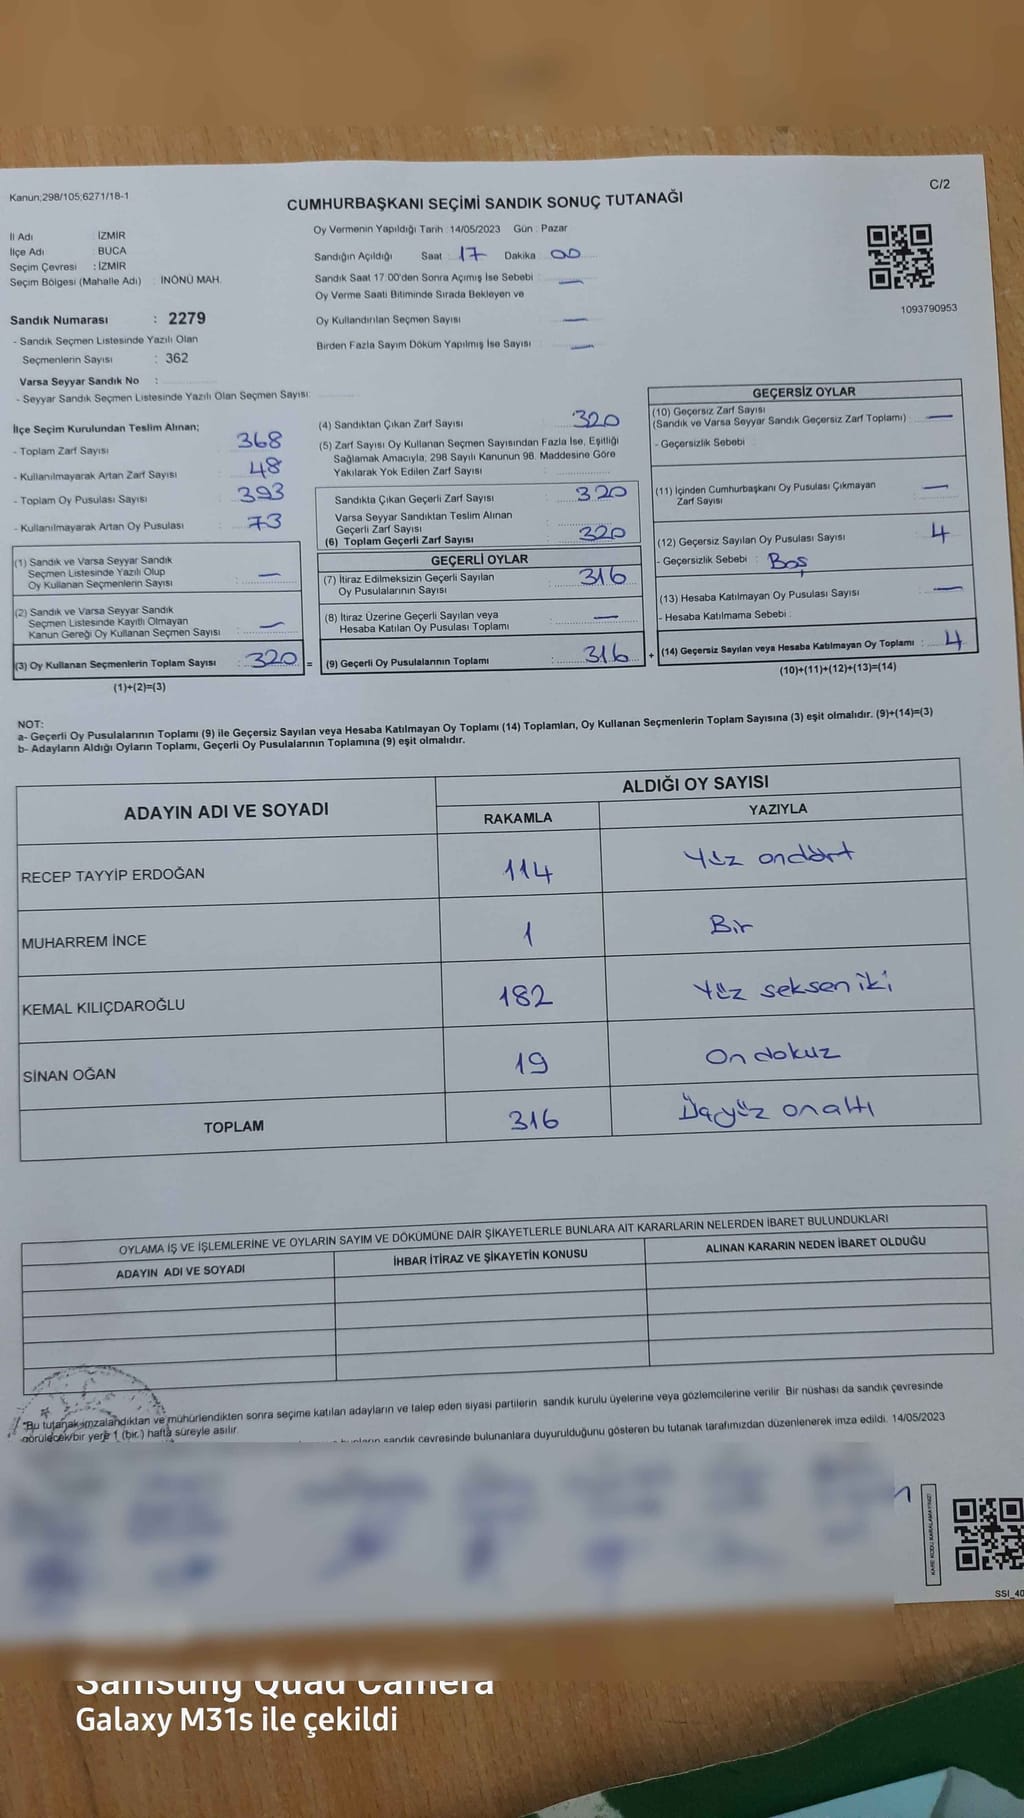 Kanun;298/105;6271/18-1
C/2
CUMHURBAŞKANI SEÇİMİ SANDIK SONUÇ TUTANAĞI
İl Adı : İZMİR
İlçe Adı : BUCA
Seçim Çevresi : İZMİR
Seçim Bölgesi (Mahalle Adı) : İNÖNÜ MAH.
Sandık Numarası : 2279
- Sandık Seçmen Listesinde Yazılı Olan
Seçmenlerin Sayısı : 362
Varsa Seyyar Sandık No :
- Seyyar Sandık Seçmen Listesinde Yazılı Olan Seçmen Sayısı:
Oy Vermenin Yapıldığı Tarih : 14/05/2023 Gün : Pazar
Sandığın Açıldığı Saat : 17 Dakika : 00
Sandık Saat 17.00'den Sonra Açımış İse Sebebi : —
Oy Verme Saati Bitiminde Sırada Bekleyen ve
Oy Kullandırılan Seçmen Sayısı : —
Birden Fazla Sayım Döküm Yapılmış İse Sayısı : —
1093790953
İlçe Seçim Kurulundan Teslim Alınan;
- Toplam Zarf Sayısı : 368
- Kullanılmayarak Artan Zarf Sayısı : 48
- Toplam Oy Pusulası Sayısı : 393
- Kullanılmayarak Artan Oy Pusulası : 73
(1) Sandık ve Varsa Seyyar Sandık
Seçmen Listesinde Yazılı Olup
Oy Kullanan Seçmenlerin Sayısı : —
(2) Sandık ve Varsa Seyyar Sandık
Seçmen Listesinde Kayıtlı Olmayan
Kanun Gereği Oy Kullanan Seçmen Sayısı : —
(3) Oy Kullanan Seçmenlerin Toplam Sayısı : 320 =
(1)+(2)=(3)
(4) Sandıktan Çıkan Zarf Sayısı : 320
(5) Zarf Sayısı Oy Kullanan Seçmen Sayısından Fazla İse, Eşitliği
Sağlamak Amacıyla; 298 Sayılı Kanunun 98. Maddesine Göre
Yakılarak Yok Edilen Zarf Sayısı :
Sandıkta Çıkan Geçerli Zarf Sayısı : 320
Varsa Seyyar Sandıktan Teslim Alınan
Geçerli Zarf Sayısı :
(6) Toplam Geçerli Zarf Sayısı : 320
GEÇERLİ OYLAR
(7) İtiraz Edilmeksizin Geçerli Sayılan
Oy Pusulalarının Sayısı : 316
(8) İtiraz Üzerine Geçerli Sayılan veya
Hesaba Katılan Oy Pusulası Toplamı : —
(9) Geçerli Oy Pusulalarının Toplamı : 316 +
GEÇERSİZ OYLAR
(10) Geçersiz Zarf Sayısı
(Sandık ve Varsa Seyyar Sandık Geçersiz Zarf Toplamı) : —
- Geçersizlik Sebebi :
(11) İçinden Cumhurbaşkanı Oy Pusulası Çıkmayan
Zarf Sayısı : —
(12) Geçersiz Sayılan Oy Pusulası Sayısı : 4
- Geçersizlik Sebebi : Boş
(13) Hesaba Katılmayan Oy Pusulası Sayısı : —
- Hesaba Katılmama Sebebi :
(14) Geçersiz Sayılan veya Hesaba Katılmayan Oy Toplamı : 4
(10)+(11)+(12)+(13)=(14)
NOT:
a- Geçerli Oy Pusulalarının Toplamı (9) ile Geçersiz Sayılan veya Hesaba Katılmayan Oy Toplamı (14) Toplamları, Oy Kullanan Seçmenlerin Toplam Sayısına (3) eşit olmalıdır. (9)+(14)=(3)
b- Adayların Aldığı Oyların Toplamı, Geçerli Oy Pusulalarının Toplamına (9) eşit olmalıdır.
ADAYIN ADI VE SOYADI ALDIĞI OY SAYISI
RAKAMLA YAZIYLA
RECEP TAYYİP ERDOĞAN 114 Yüz ondört
MUHARREM İNCE 1 Bir
KEMAL KILIÇDAROĞLU 182 Yüz seksen iki
SİNAN OĞAN 19 On dokuz
TOPLAM 316 Üçyüz onaltı
OYLAMA İŞ VE İŞLEMLERİNE VE OYLARIN SAYIM VE DÖKÜMÜNE DAİR ŞİKAYETLERLE BUNLARA AİT KARARLARIN NELERDEN İBARET BULUNDUKLARI
ADAYIN ADI VE SOYADI İHBAR İTİRAZ VE ŞİKAYETİN KONUSU ALINAN KARARIN NEDEN İBARET OLDUĞU
"Bu tutanak imzalandıktan ve mühürlendikten sonra seçime katılan adayların ve talep eden siyasi partilerin sandık kurulu üyelerine veya gözlemcilerine verilir. Bir nüshası da sandık çevresinde
görülecek bir yere 1 (bir.) hafta süreyle asılır.
sandık çevresinde bulunanlara duyurulduğunu gösteren bu tutanak tarafımızdan düzenlenerek imza edildi. 14/05/2023
KARE KODU KARALAMAYINIZ!
SSI_40
Samsung Quad Camera
Galaxy M31s ile çekildi